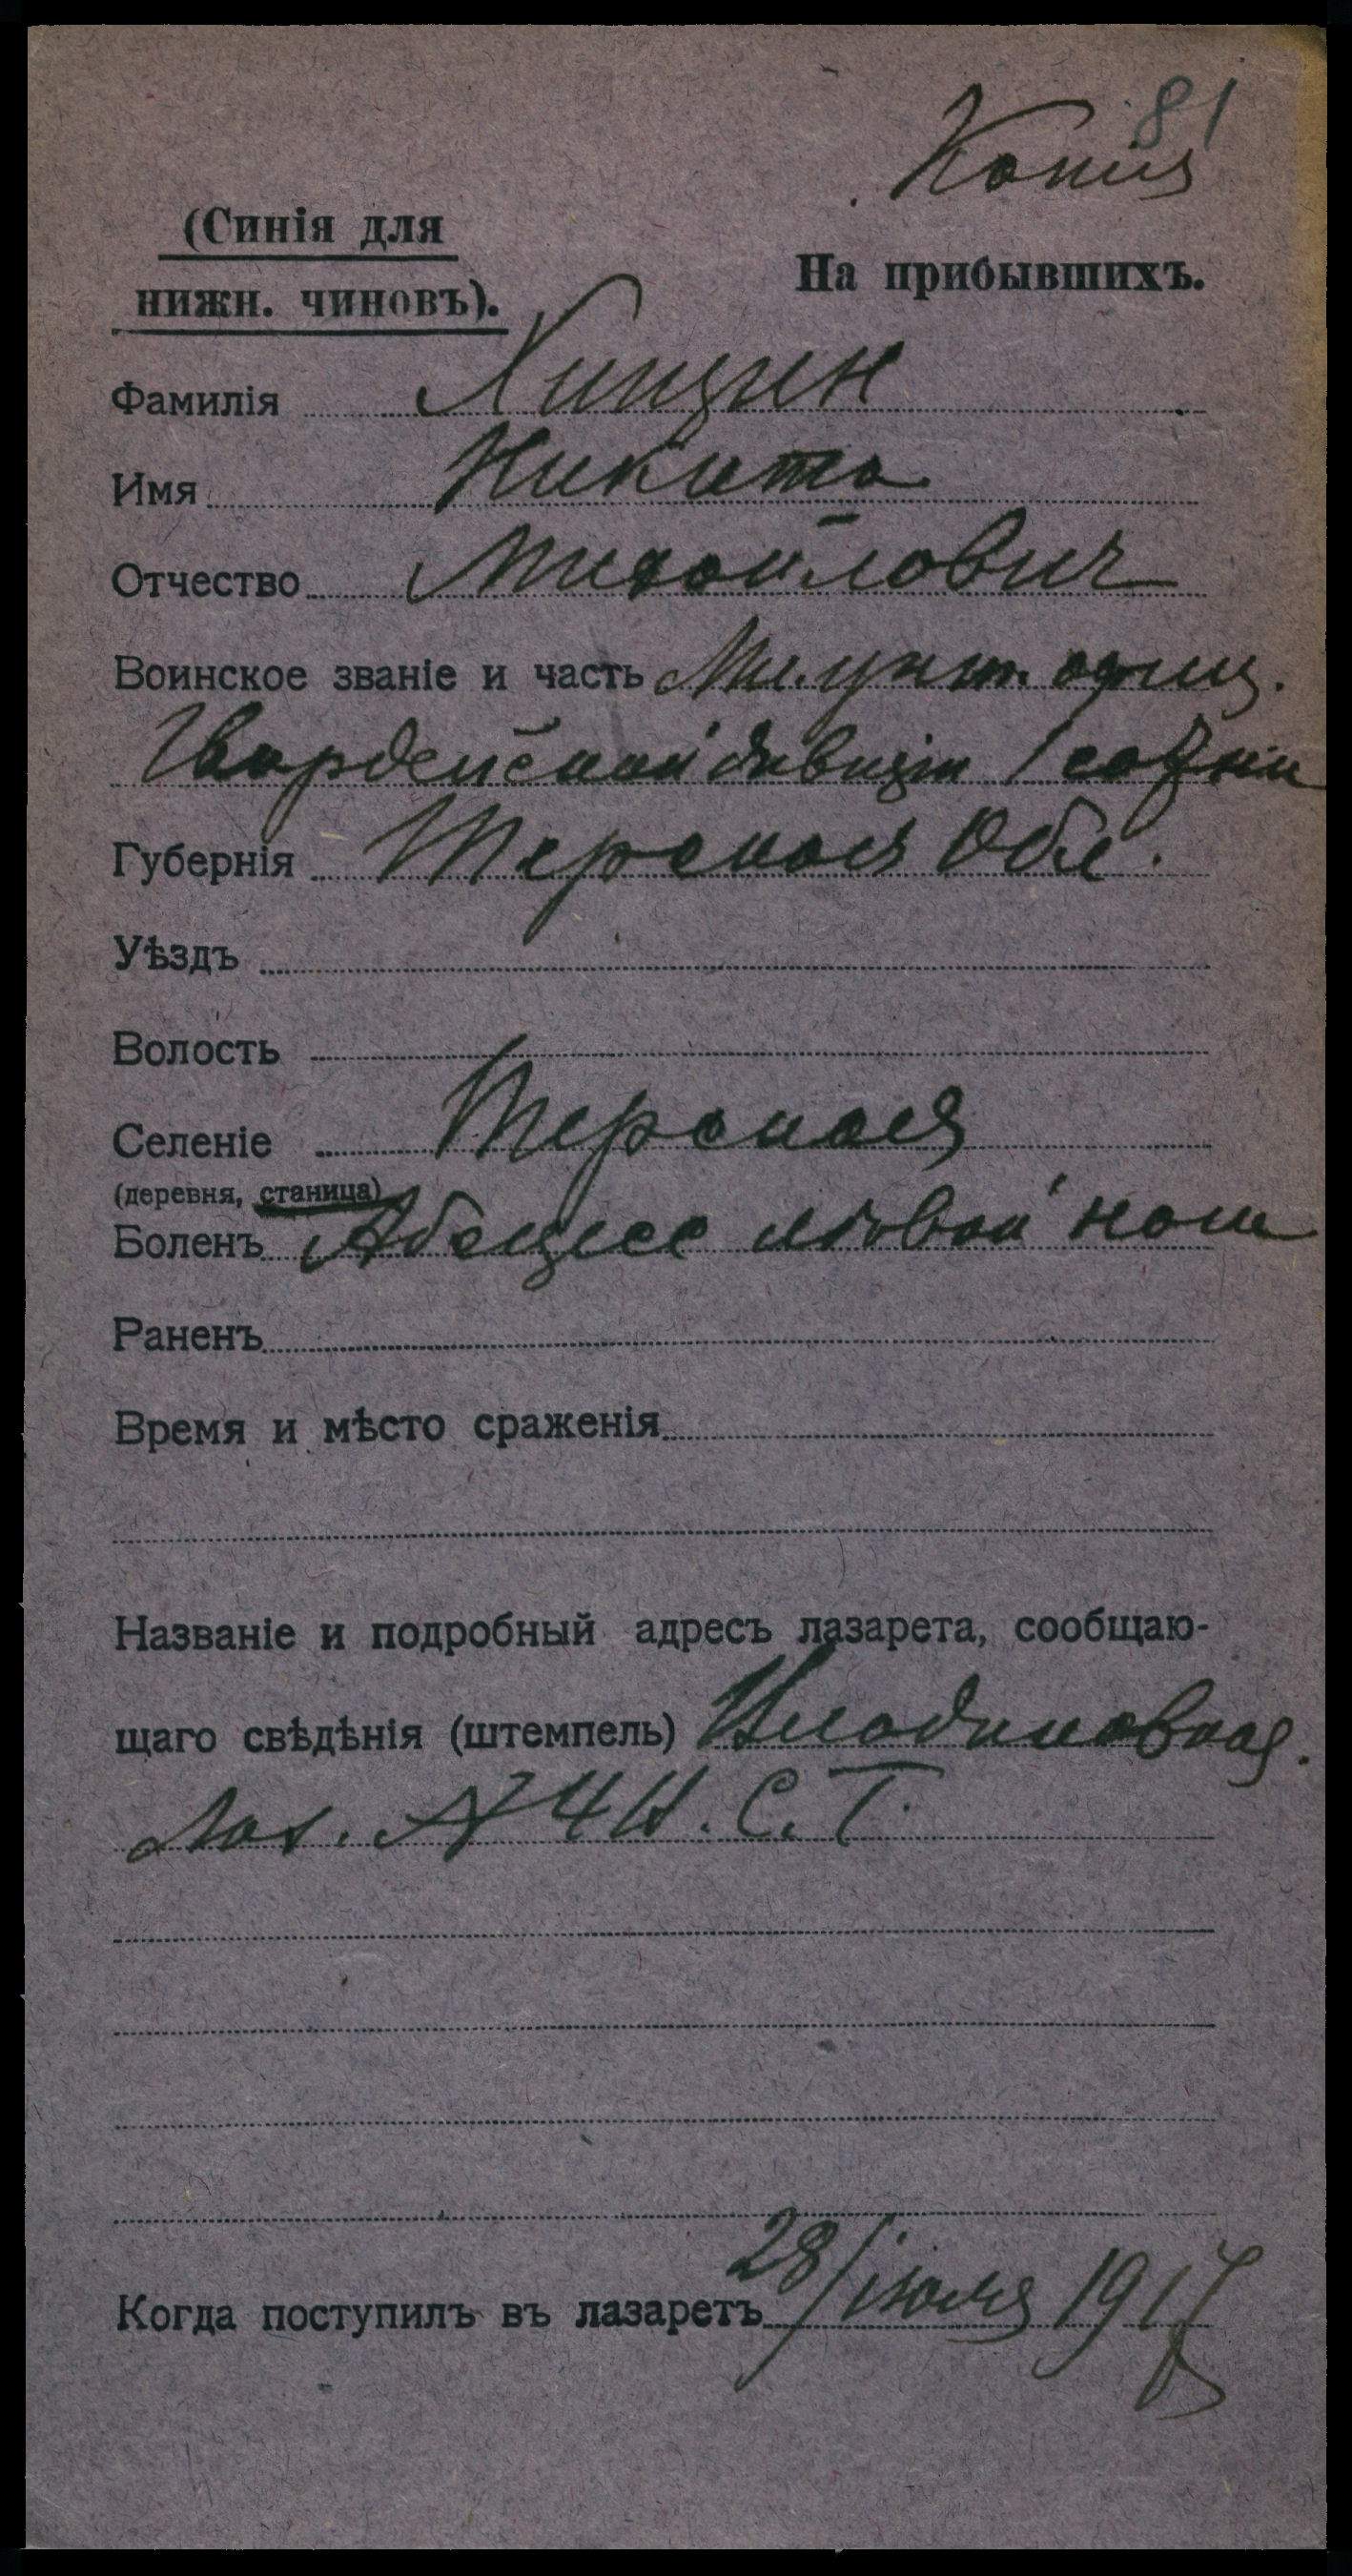 81
Копия
(Синія для
На прибывшихъ.
нижн. чиновъ).
Фамилія Хищин
Имя Никита
Отчество Михайлович
Воинское званіе и часть Мл. унт. офиц.
Гвардейской дивизіи 1 сотни
Губернія Терская Обл.
Уѣздъ
Волость
Селеніе Терская
(деревня, станица)
Боленъ Абсцесс лѣвой ноги
Раненъ
Время и мѣсто сраженія
Названіе и подробный адресъ лазарета, сообщаю-
щаго свѣдѣнія (штемпель)
Лаз. № 4 С. Т.
Когда поступилъ въ лазаретъ 28/іюля 1917